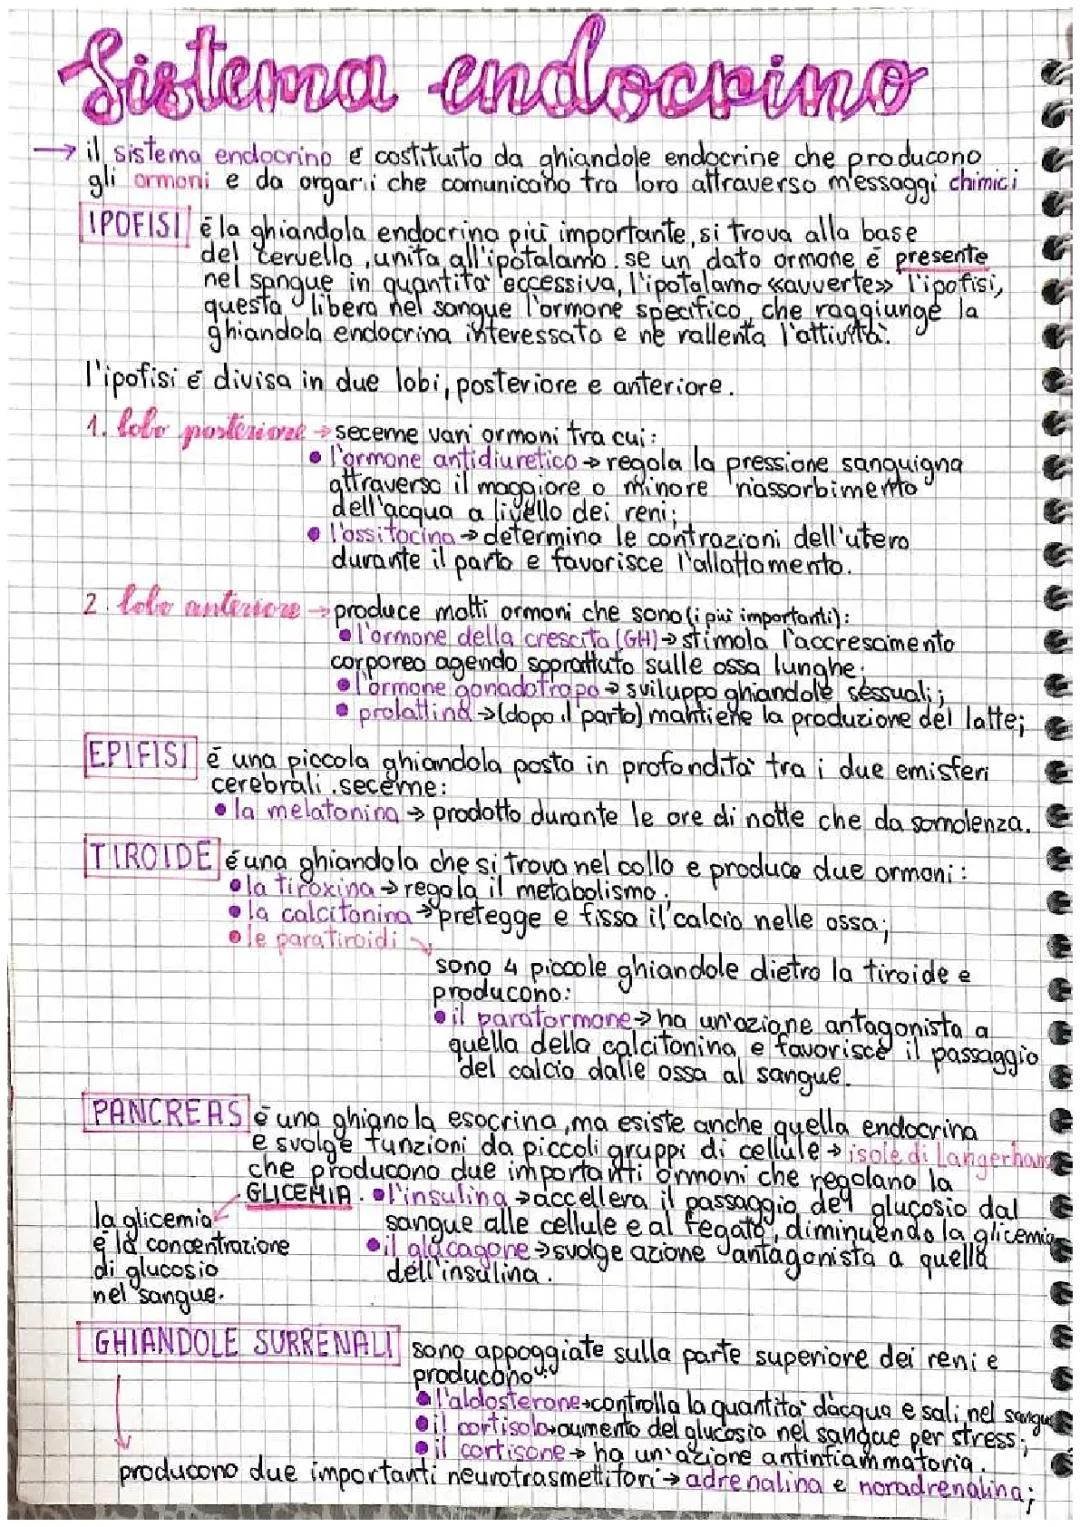 Sistema endocrino
→ il sistema endocrino é costituito da ghiandole endocrine che producono
gli ormoni e da organi che comunicano tra loro attraverso messaggi chimici
IPOFISI é la ghiandola endocrina piú importante, si trova alla base
del cervello, unita all'ipotalamo. se un dato ormone é presente
nel sangue in quantitá eccessiva, l'ipotalamo «avverte» l'ipofisi,
questa libera nel sangue l'ormone specifico che raggiunge la
ghiandola endocrina interessata e ne rallenta l'attivitá.
l'ipofisi é divisa in due lobi, posteriore e anteriore.
1. lobo posteriore → secerne vari ormoni tra cui:
• l'ormone antidiuretico → regola la pressione sanguigna
attraverso il maggiore o minore riassorbimento
dell'acqua a livello dei reni;
• l'ossitocina → determina le contrazioni dell'utero
durante il parto e favorisce l'allattamento.
2. lobo anteriore → produce molti ormoni che sono (i piú importanti):
• l'ormone della crescita (GH) → stimola l'accrescimento
corporeo agendo soprattuto sulle ossa lunghe;
• l'ormone gonadotropo → sviluppo ghiandole sessuali;
• prolattina → (dopo il parto) mantiene la produzione del latte;
EPIFISI é una piccola ghiandola posta in profonditá tra i due emisferi
cerebrali. secerne:
• la melatonina → prodotto durante le ore di notte che da sonnolenza.
TIROIDE é una ghiandola che si trova nel collo e produce due ormoni:
• la tiroxina → regola il metabolismo;
• la calcitonina → pretegge e fissa il calcio nelle ossa;
• le paratiroidi
sono 4 piccole ghiandole dietro la tiroide e
producono:
• il paratormone → ha un'azione antagonista a
quella della calcitonina e favorisce il passaggio
del calcio dalle ossa al sangue.
PANCREAS é una ghiandola esocrina, ma esiste anche quella endocrina
e svolge funzioni da piccoli gruppi di cellule → isole di Langerhans
che producono due importanti ormoni che regolano la
GLICEMIA. • l'insulina → accellera il passaggio del glucosio dal
sangue alle cellule e al fegato, diminuendo la glicemia
• il glucagone → svolge azione antagonista a quella
dell'insulina.
la glicemia
é la concentrazione
di glucosio
nel sangue.
GHIANDOLE SURRENALI sono appoggiate sulla parte superiore dei reni e
producono:
• l'aldosterone → controlla la quantitá d'acqua e sali nel sangue
• il cortisolo → aumento del glucosio nel sangue per stress;
• il cortisone → ha un'azione antinfiammatoria.
producono due importanti neurotrasmettitori → adrenalina e noradrenalina;